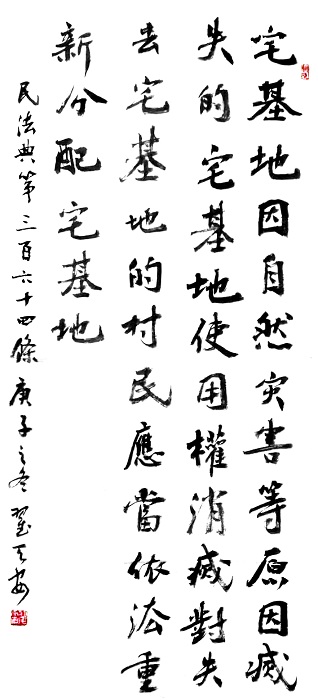 宅基地因自然灾害等原因滅
失的宅基地使用權消滅對失
去宅基地的村民應當依法重
新分配宅基地
民法典第三百六十四條 庚子之冬 翟